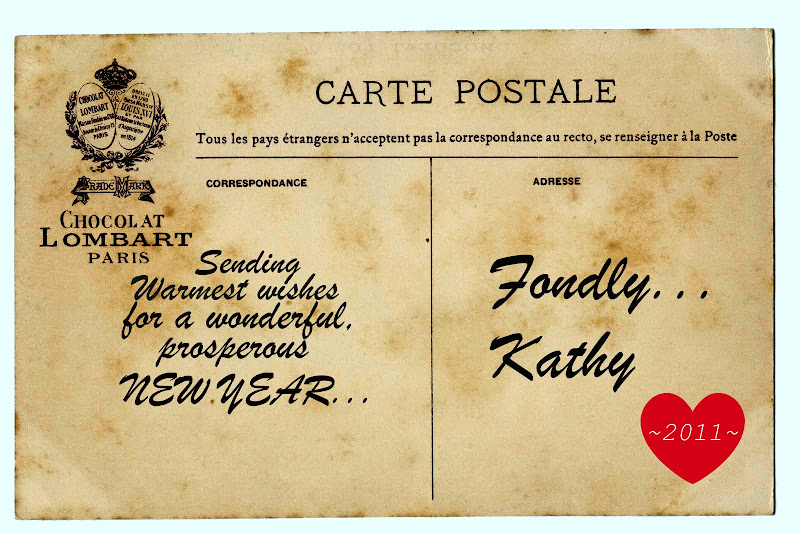 CARTE POSTALE
Tous les pays étrangers n'acceptent pas la correspondance au recto, se renseigner à la Poste
CORRESPONDANCE
ADRESSE
CHOCOLAT
LOMBART
PARIS
LOUIS XVI
TRADE MARK
CHOCOLAT
LOMBART
PARIS
Sending
Warmest wishes
for a wonderful,
prosperous
NEW YEAR...
Fondly...
Kathy
~2011~